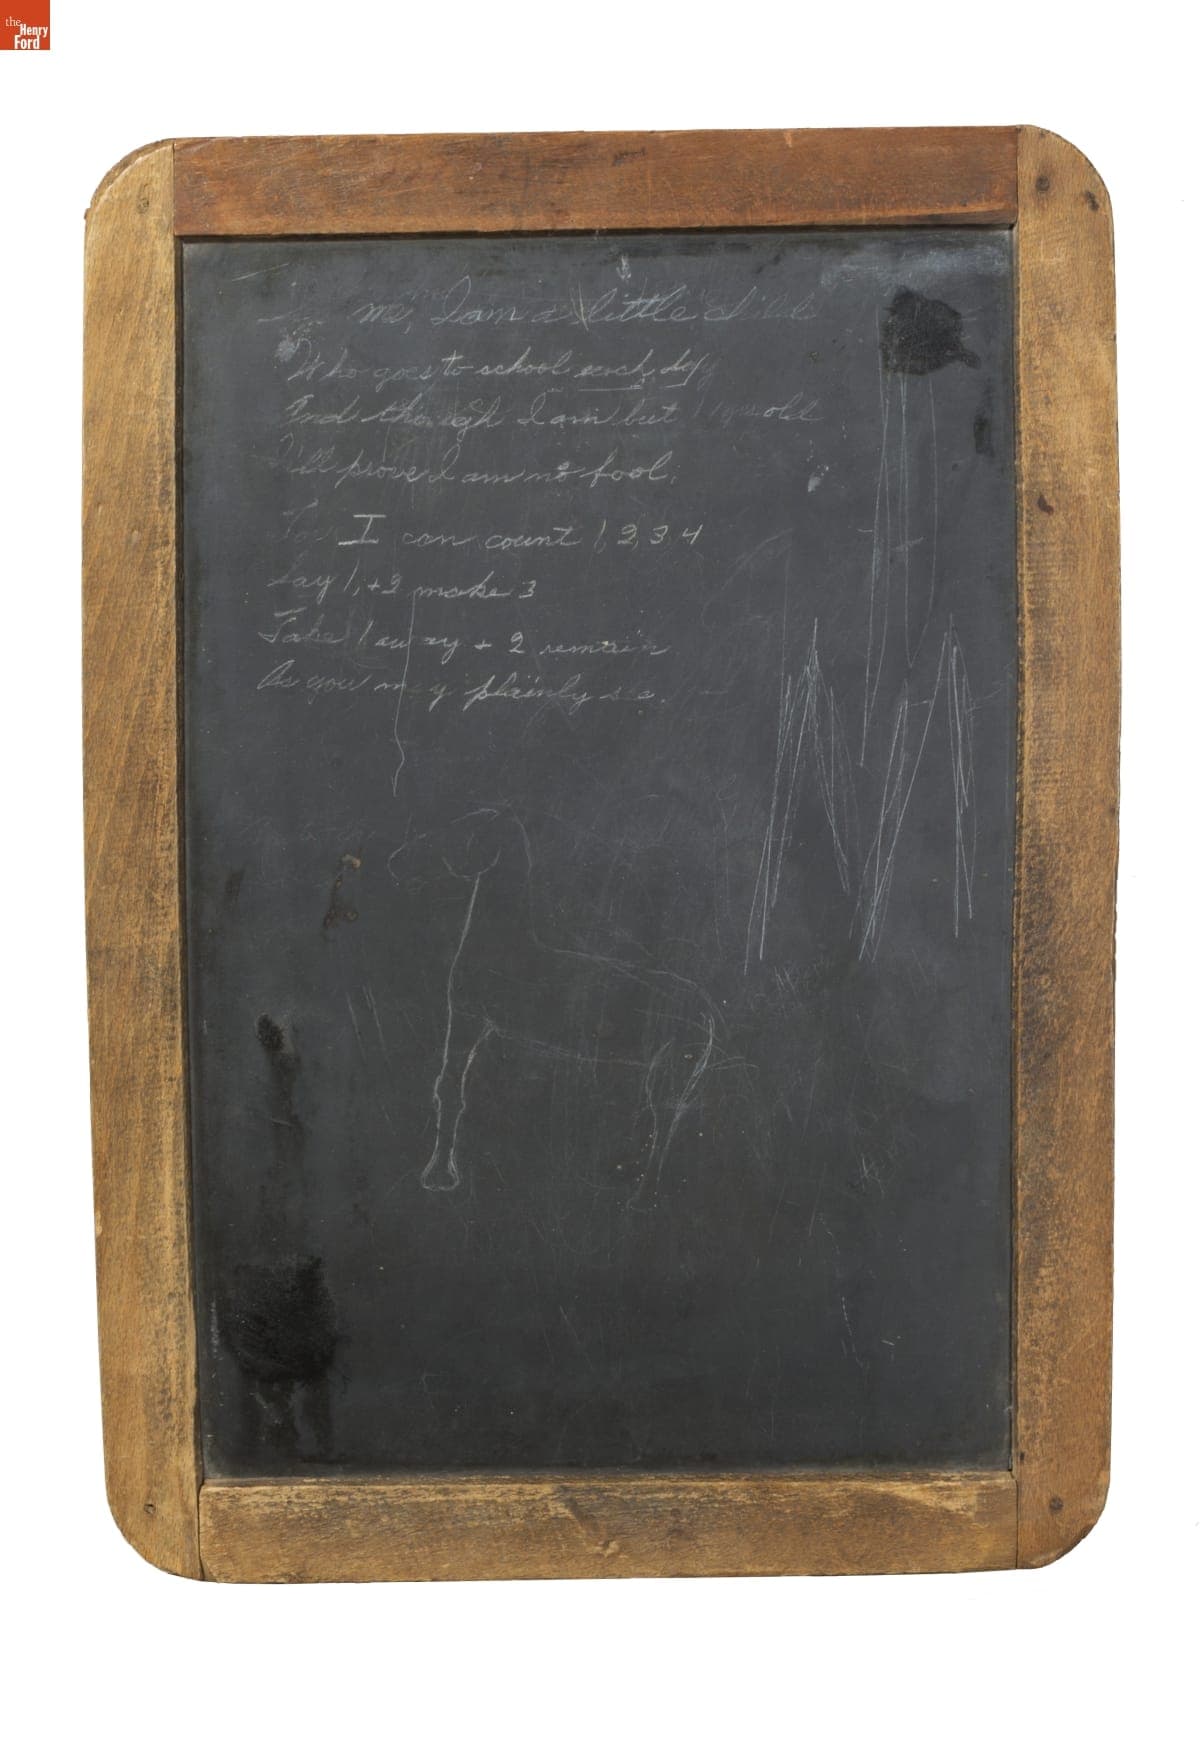 the
Henry
Ford
me, I am a little child
Who goes to school each day
And though I am but 11 yrs old
I'll prove I am no fool.
For I can count 1, 2, 3, 4
Say 1, +2 make 3
Take 1 away + 2 remain
As you may plainly see.